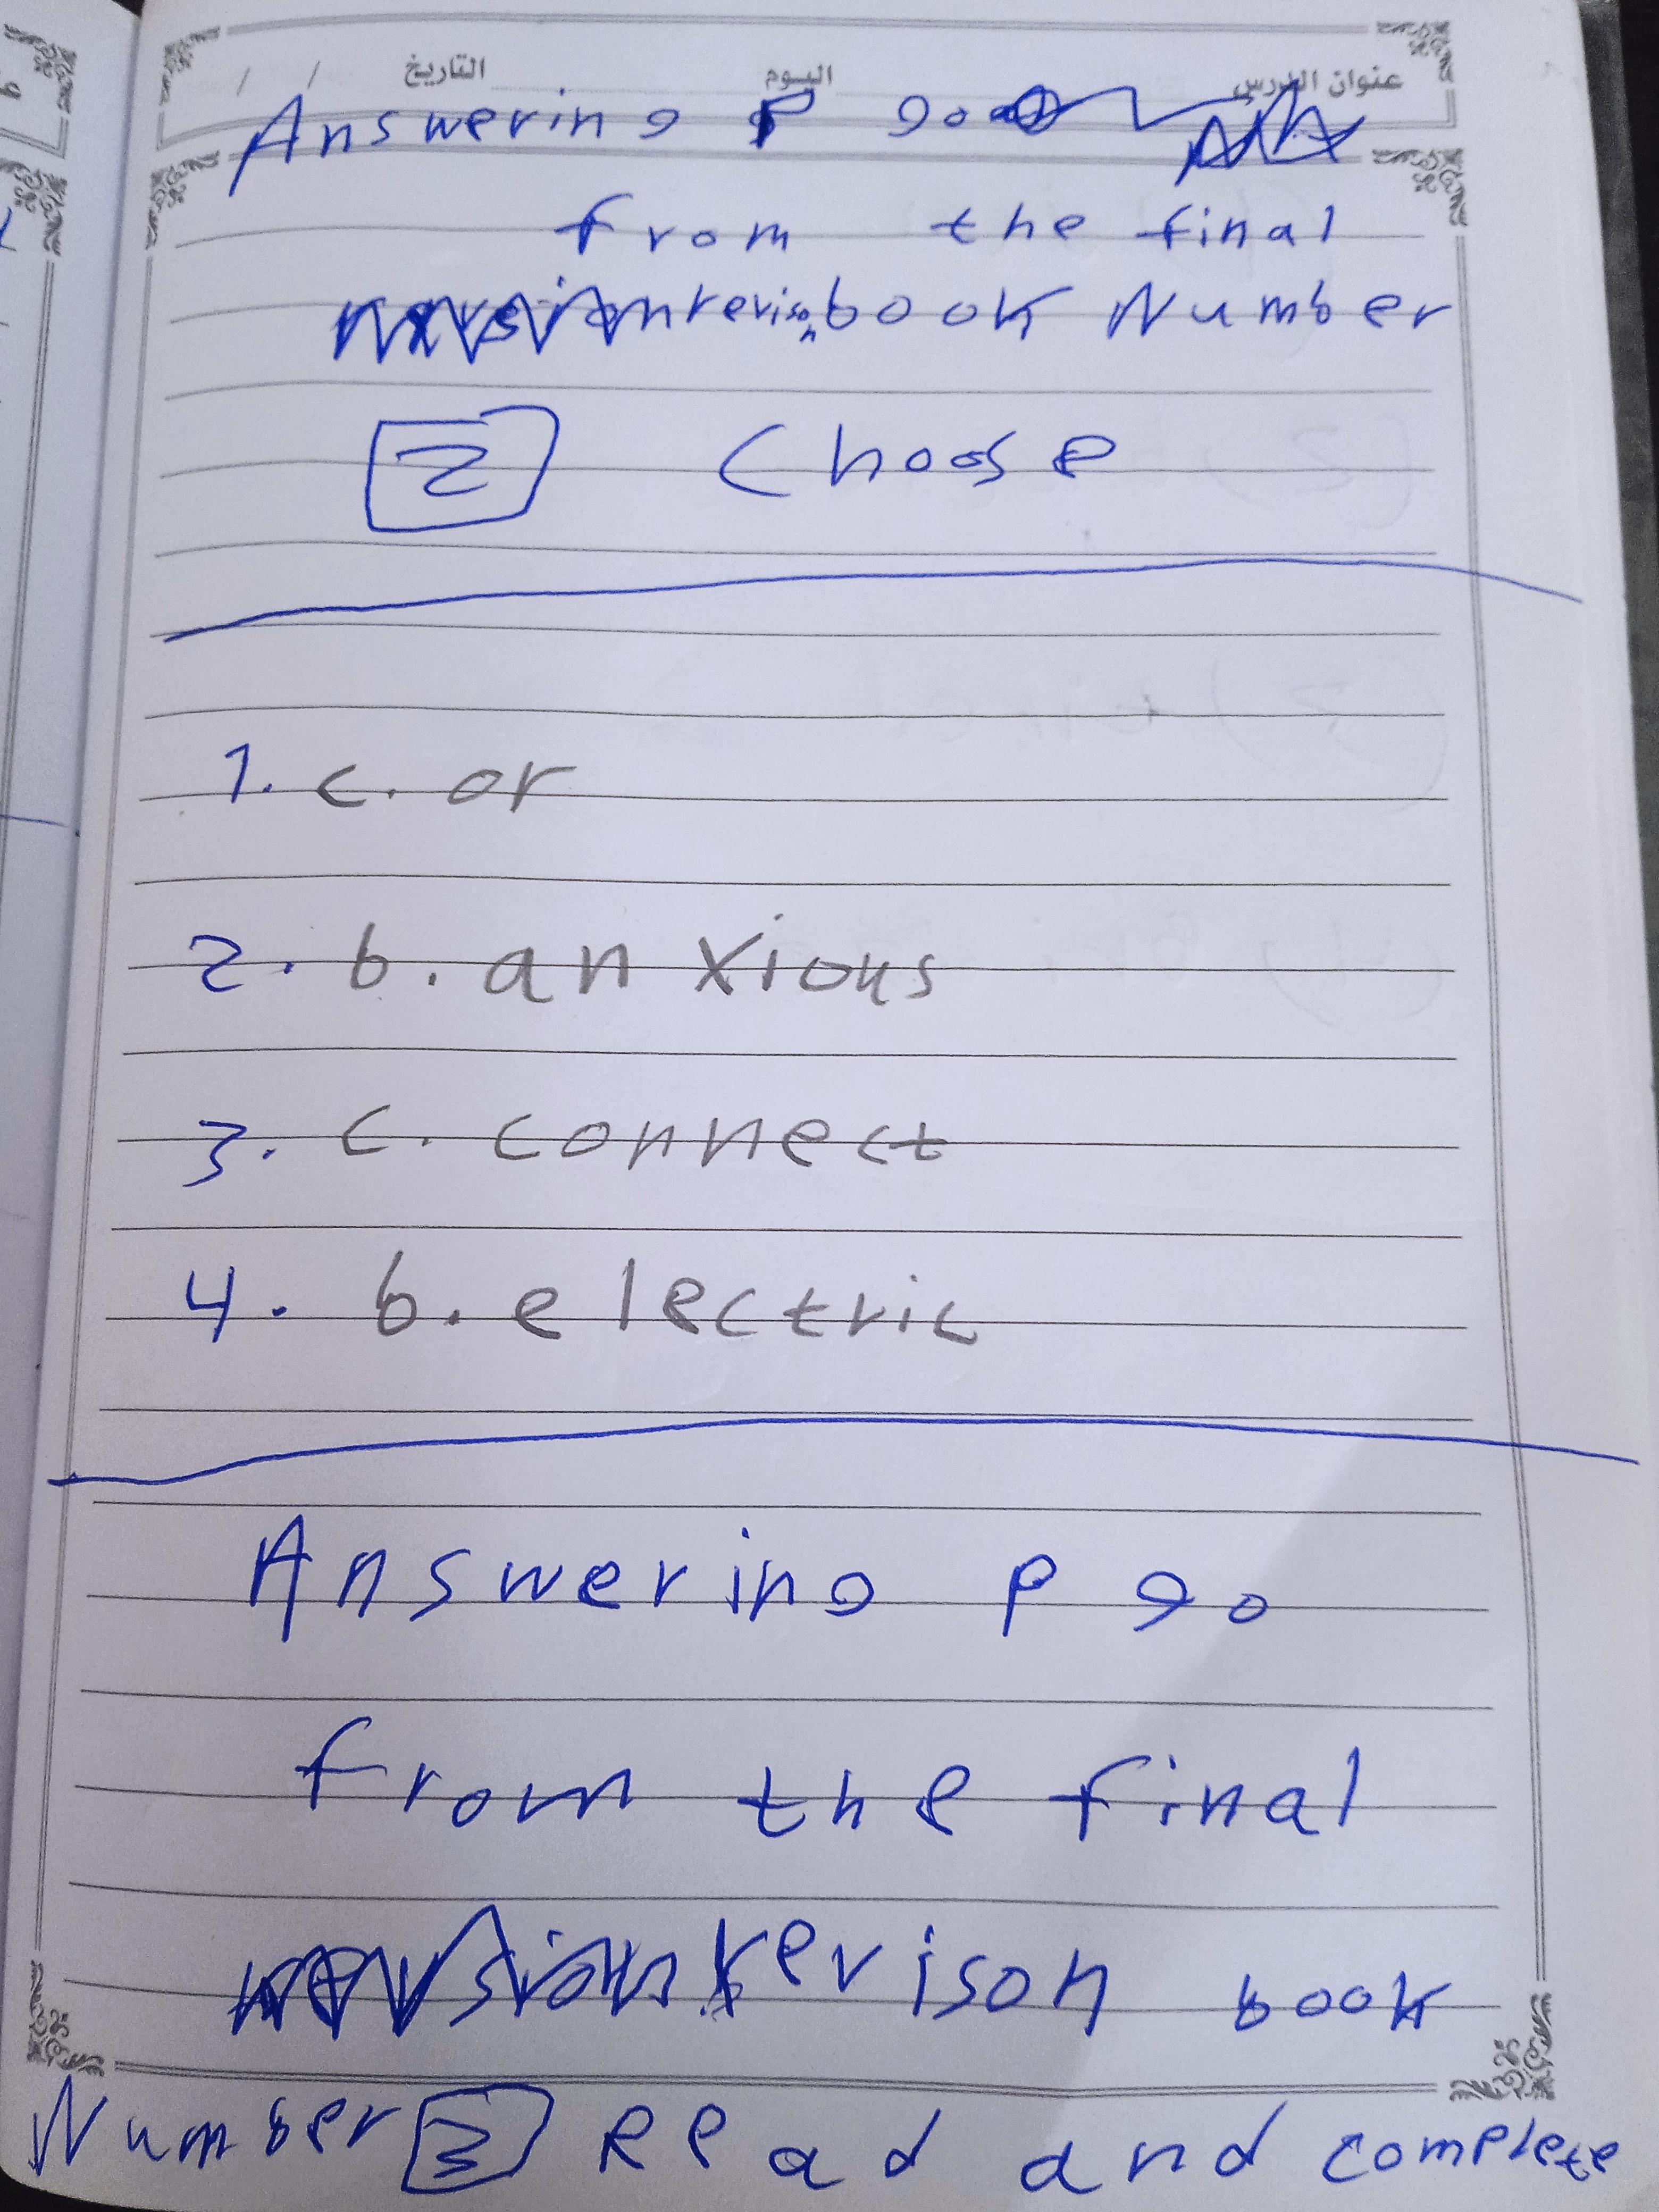 عنوان الدرس اليوم التاريخ / /
Answering P 90
from the final
revison book Number
2 Choose
1. c. or
2. b. anxious
3. c. connect
4. b. electric
Answering P 90
from the final
revison book
Number 3 Read and complete